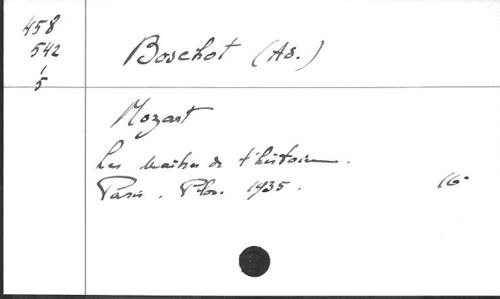 458
542
1
5
Boschot (Ad.)
Mozart
Les maîtres de l'histoire.
Paris. Plon. 1935. 16°